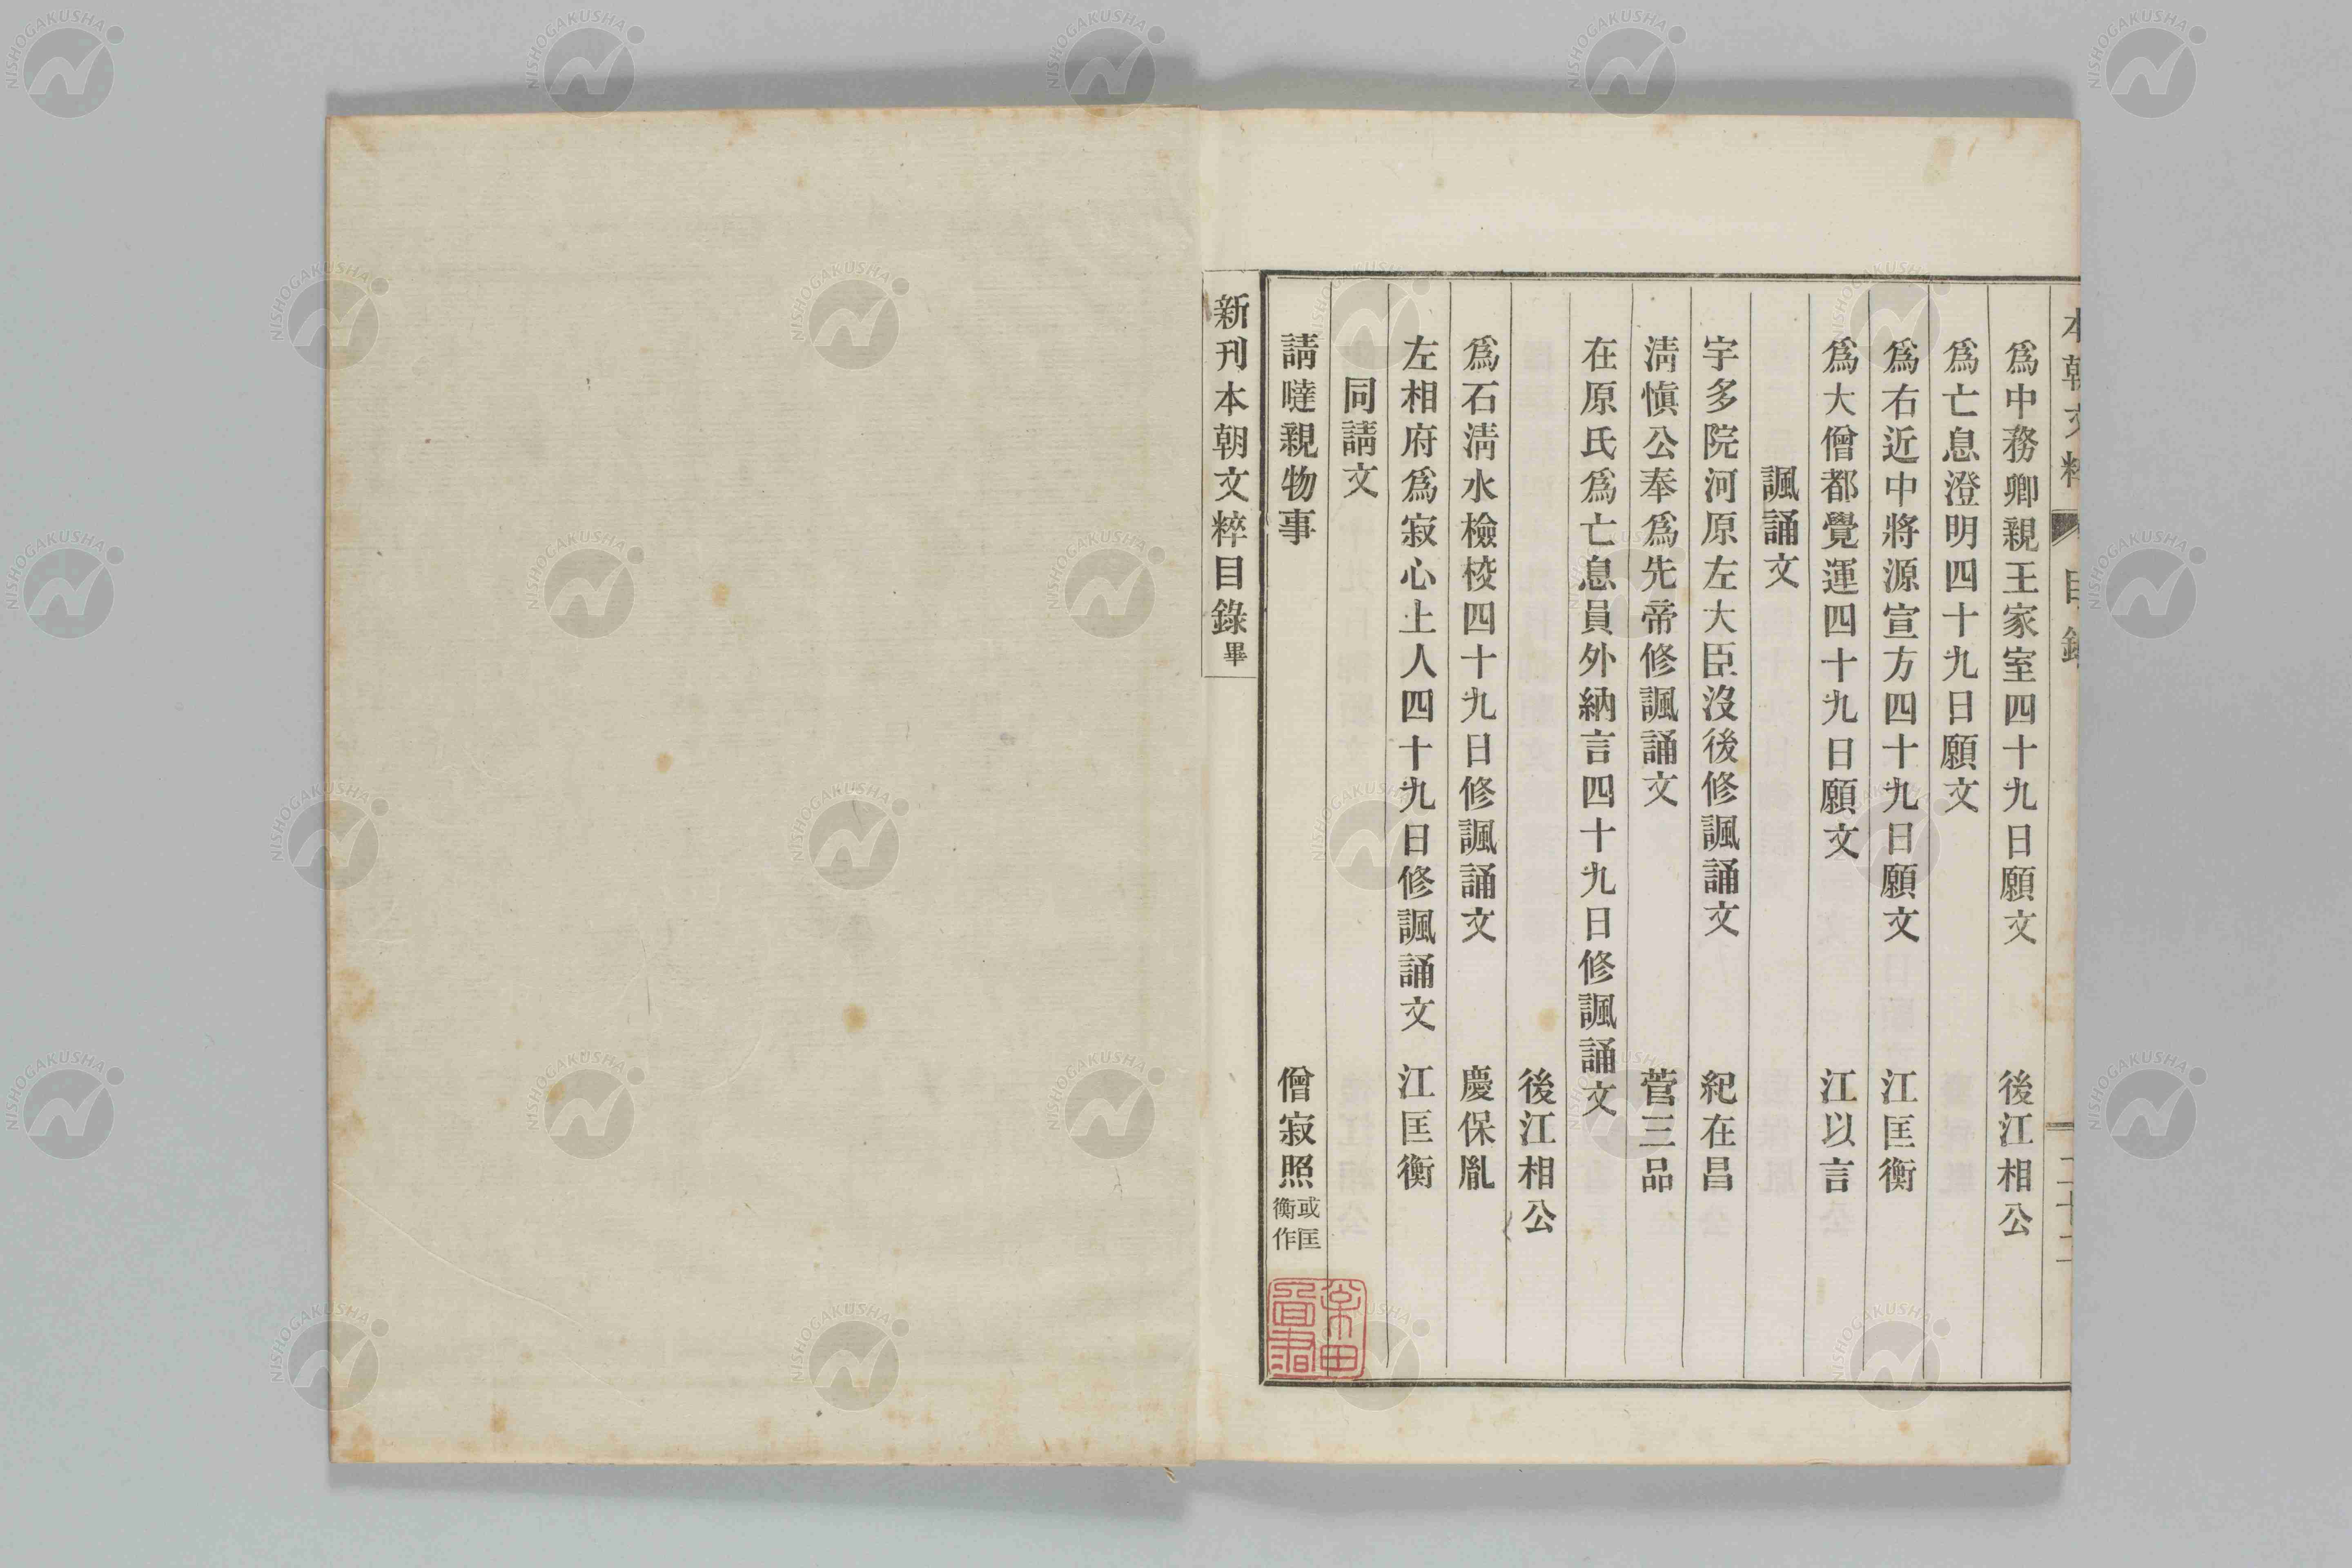 本朝文粹 目錄 二十二
爲中務卿親王家室四十九日願文 後江相公
爲亡息澄明四十九日願文
爲右近中將源宣方四十九日願文 江匡衡
爲大僧都覺運四十九日願文 江以言
諷誦文
宇多院河原左大臣沒後修諷誦文 紀在昌
淸愼公奉爲先帝修諷誦文 菅三品
在原氏爲亡息員外納言四十九日修諷誦文
後江相公
爲石淸水檢校四十九日修諷誦文 慶保胤
左相府爲寂心上人四十九日修諷誦文 江匡衡
同請文
請噠親物事 僧寂照 或匡衡作
新刊本朝文粹目錄畢
NISHOGAKUSHA